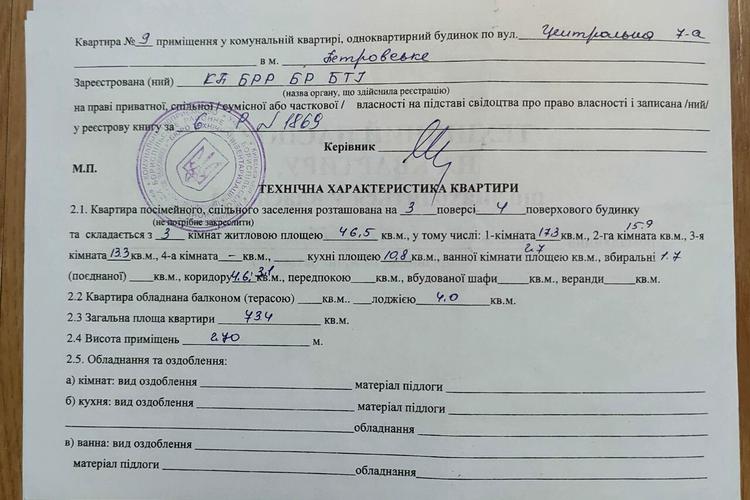 Квартира № 9 приміщення у комунальній квартирі, одноквартирний будинок по вул. Центральна 7-а
в м. Петровське
Зареєстрована (ний) КП БРР БР БТІ
(назва органу, що здійснила реєстрацію)
на праві приватної, спільної / сумісної або часткової / власності на підставі свідоцтва про право власності і записана /ний/
у реєстрову книгу за 6 Р № 1869
Керівник
М.П.
ТЕХНІЧНА ХАРАКТЕРИСТИКА КВАРТИРИ
2.1. Квартира посімейного, спільного заселення розташована на 3 поверсі 4 поверхового будинку
(не потрібне закреслити)
та складається з 3 кімнат житловою площею 46,5 кв.м., у тому числі: 1-кімната 17.3 кв.м., 2-га кімната 15.9 кв.м., 3-я
кімната 13.3 кв.м., 4-а кімната – кв.м., кухні площею 10,8 кв.м., ванної кімнати площею 2.7 кв.м., вбиральні 1.7
(поєднаної) кв.м., коридору 4.6; 3.1 кв.м., передпокою кв.м., вбудованої шафи кв.м., веранди кв.м.
2.2 Квартира обладнана балконом (терасою) кв.м.. лоджією 4.0 кв.м.
2.3 Загальна площа квартири 734 кв.м.
2.4 Висота приміщень 2.70 м.
2.5. Обладнання та оздоблення:
а) кімнат: вид оздоблення матеріал підлоги
б) кухня: вид оздоблення матеріал підлоги
обладнання
в) ванна: вид оздоблення
матеріал підлоги обладнання